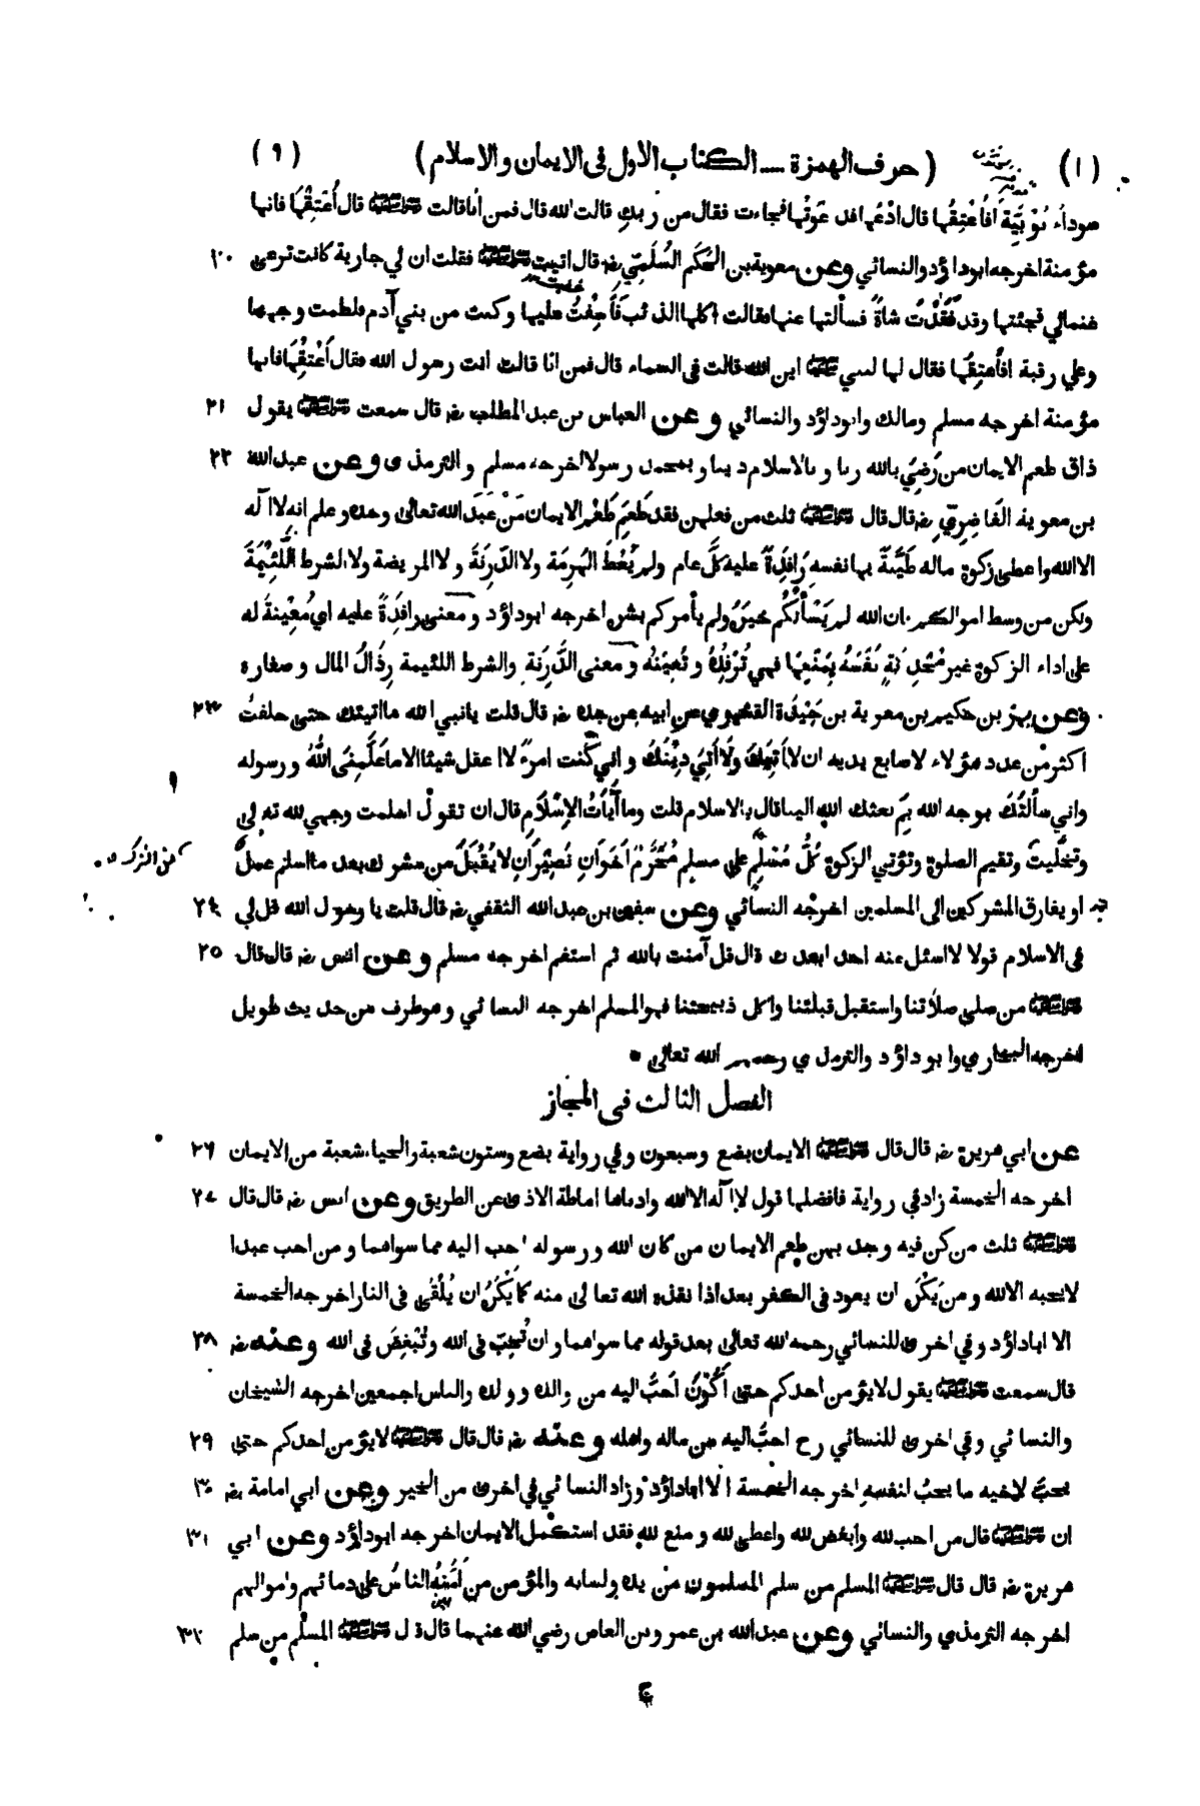 (١) (حرف الهمزة — الكتاب الاول فى الايمان والاسلام) (٩)
سوداء نُوْبِيَّة أفأعتِقُها قال ادْعُها فدعَوتُها فجاءت فقال من ربكِ قالت الله قال فمن أنا قالت ﷺ قال أَعتِقْها فانها
مؤمنة اخرجه ابوداؤد والنسائي وعن معوية بن الحَكَم السُلَمِيّ رض قال اتيت ﷺ فقلت ان لي جارية كانت ترعى ٢٠
غنمالي فجئتها وقد فَقَدْتُ شاةً فسألتها عنها فقالت اكلها الذئب فأسِفْتُ عليها وكنت من بني آدم فلطمت وجهها
وعلي رقبة افأُعتِقُها فقال لها ﷺ اين الله قالت فى السماء قال فمن انا قالت انت رسول الله فقال أَعْتِقْها فانها
مؤمنة اخرجه مسلم ومالك وابوداؤد والنسائي وعن العباس بن عبد المطلب رض قال سمعت ﷺ يقول ٢١
ذاق طعم الايمان من رَضِيَ بالله ربا وبالاسلام دينا وبمحمد رسولا اخرجه مسلم والترمذى وعن عبدالله ٢٢
بن معوية الغَاضِرِيّ رض قال قال ﷺ ثلث من فعلهن فقد طَعِمَ طَعْمَ الايمان مَنْ عَبَدَ الله تعالى وحده وعلم انه لا اله
الا الله واعطى زكوة ماله طَيِّبَةً بها نفسه رَافِدَةً عليه كلَّ عام ولم يُعْطِ الهَرِمَة ولا الدَّرِنَةَ ولا المريضة ولا الشرط اللَّئِيْمَةَ
ولكن من وسط اموالكم فان الله لم يَسْأَلْكُم خيرَه ولم يأمركم بشره اخرجه ابوداؤد ومعنى رافِدَةً عليه اي مُعِيْنةً له
على اداء الزكوة غير مُحَدِّثَةٍ نَفْسَهُ بِمَنْعِها فهي تُرْفِدُهُ وتُعِيْنُه ومعنى الدَّرِنَة والشرط اللئيمة رِذَالُ المال وصغاره
وعن بهز بن حكيم بن معوية بن حَيْدَة القشيري عن ابيه عن جده رض قال قلت يا نبي الله ما اتيتك حتى حلفتُ ٢٣
اكثر من عدد هؤلاء لاصابع يديه ان لا آتيك ولا آتي دِيْنَكَ واني كنت امرءً لا اعقل شيئا الا ما عَلَّمَنِى اللهُ ورسوله
واني سألتُكَ بوجه الله بِمَ بعثك الله الينا قال بالاسلام قلت وما آيَاتُ الاِسْلَامِ قال ان تقول اسلمت وجهي لله تع لى
وتخلّيتَ وتقيم الصلوة وتؤتي الزكوة كُلُّ مُسْلِمٍ على مسلم مُحَرَّمٌ اَخَوَانِ نَصِيْرَانِ لا يُقْبَلُ من مشرك بعد ما اسلم عملٌ
او يفارق المشركين الى المسلمين اخرجه النسائي وعن سفين بن عبدالله الثقفي رض قال قلت يا رسول الله قل لي ٢٤
فى الاسلام قولا لا اسئل عنه احدا بعدك قال قل آمنت بالله ثم استقم اخرجه مسلم وعن انس رض قال قال ٢٥
ﷺ من صلى صلاتنا واستقبل قبلتنا واكل ذبيحتنا فهو المسلم اخرجه النسائي وهو طرف من حديث طويل
اخرجه البخاري وابوداؤد والترمذي رحمهم الله تعالى
الفصل الثالث فى المجاز
عن ابي هريرة رض قال قال ﷺ الايمان بضع وسبعون وفي رواية بضع وستون شعبة والحياء شعبة من الايمان ٢٦
اخرجه الخمسة زاد في رواية فافضلها قول لا اله الا الله وادناها اماطة الاذى عن الطريق وعن انس رض قال قال ٢٧
ﷺ ثلث من كن فيه وجد بهن طعم الايمان من كان الله ورسوله احب اليه مما سواهما ومن احب عبدا
لا يحبه الا لله ومن يَكْرَهُ ان يعود فى الكفر بعد اذا نقذه الله تعالى منه كما يَكْرَهُ ان يُلْقَى فى النار اخرجه الخمسة
الا اباداؤد وفي اخرى للنسائي رحمه الله تعالى بعد قوله مما سواهما وان تُحِبّ فى الله وتُبْغِضَ فى الله وعنه رض ٢٨
قال سمعت ﷺ يقول لا يؤمن احدكم حتى اَكُوْنَ اَحَبَّ اليه من والده وولده والناس اجمعين اخرجه الشيخان
والنسائي وفي اخرى للنسائي رح احبَّ اليه من ماله واهله وعنه رض قال قال ﷺ لا يؤمن احدكم حتى ٢٩
يحبّ لاخيه ما يحبّ لنفسه اخرجه الخمسة الا اباداؤد وزاد النسائي في اخرى من الخير وعن ابي امامة رض ٣٠
ان ﷺ قال من احب لله وابغض لله واعطى لله ومنع لله فقد استكمل الايمان اخرجه ابوداؤد وعن ابي ٣١
هريرة رض قال قال ﷺ المسلم من سلم المسلمون من يده ولسانه والمؤمن من اَمِنَهُ الناسُ على دمائهم واموالهم
اخرجه الترمذي والنسائي وعن عبدالله بن عمرو بن العاص رضي الله عنهما قال قال ﷺ المسلم من سلم ٣٢